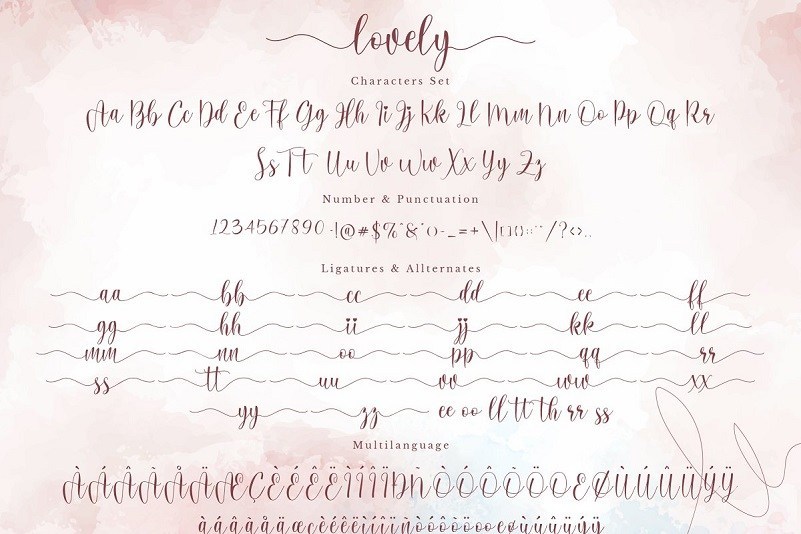 lovely
Characters Set
Aa Bb Cc Dd Ee Ff Gg Hh Ii Jj Kk Ll Mm Nn Oo Pp Qq Rr
Ss Tt Uu Vv Ww Xx Yy Zz
Number & Punctuation
1234567890 -!@#$%^&*()-_=+\|[]{}:;'"/?<>,.
Ligatures & Allternates
aa bb cc dd ee ff
gg hh ii jj kk ll
mm nn oo pp qq rr
ss tt uu vv ww xx
yy zz ee oo ll tt th rr ss
Multilanguage
ÀÁÂÃÅÄÆÇÈÉÊËÌÍÎÏÐñÒÓÔÕÖŒØÙÚÛÜÝŸ